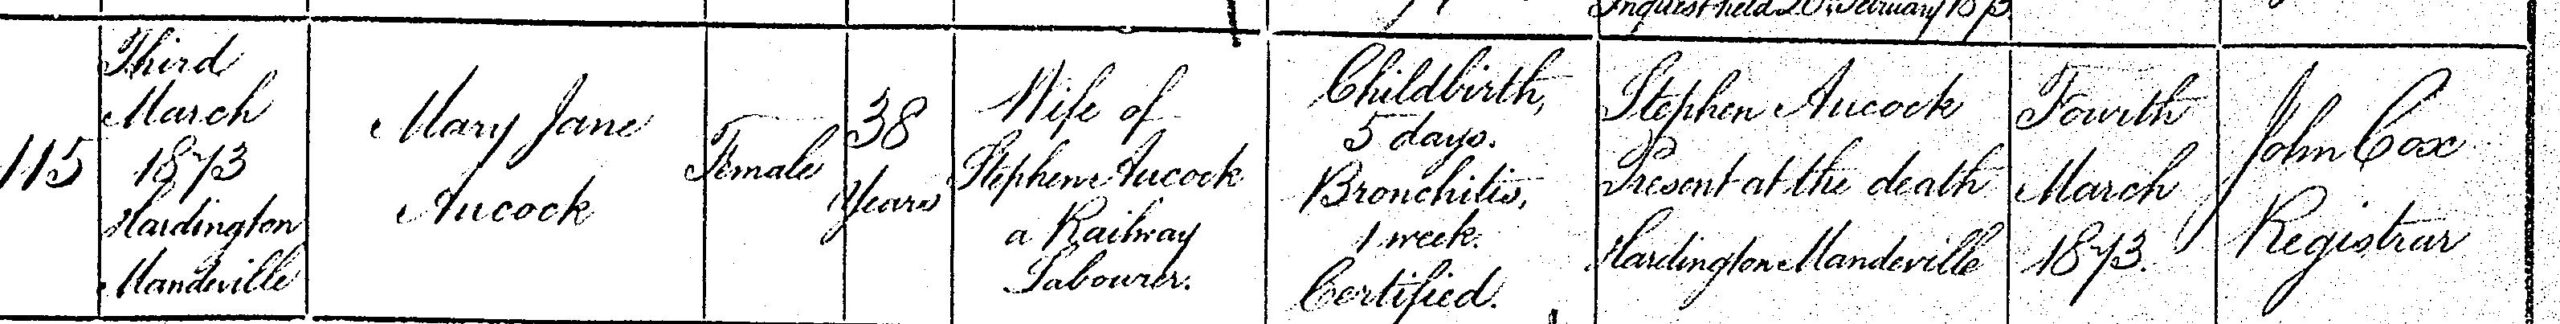 Inquest held 20 February 1873
115
Third
March
1873
Hardington
Mandeville
Mary Jane
Aucock
Female
38
Years
Wife of
Stephen Aucock
a Railway
Labourer.
Childbirth,
5 days.
Bronchitis,
1 week.
Certified.
Stephen Aucock
Present at the death
Hardington Mandeville
Fourth
March
1873.
John Cox
Registrar